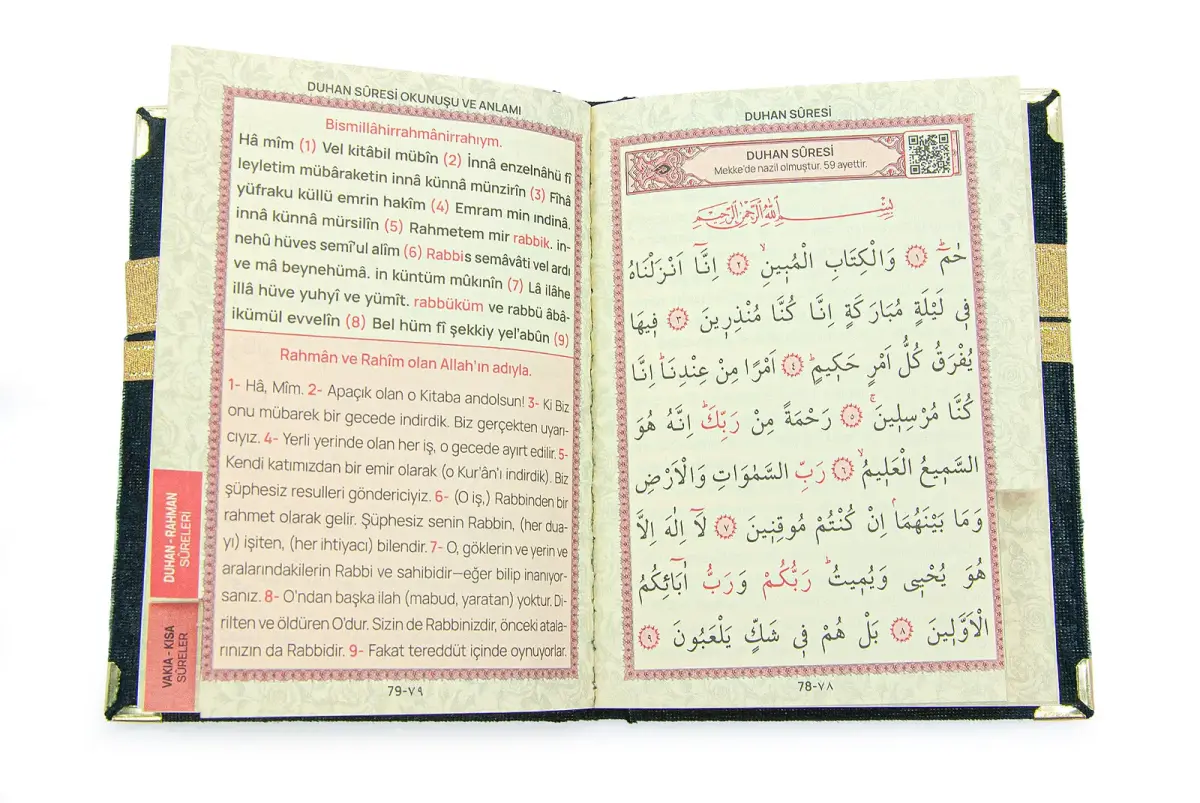 DUHAN SÛRESİ OKUNUŞU VE ANLAMI
Bismillâhirrahmânirrahıym.
Hâ mîm (1) Vel kitâbil mübîn (2) İnnâ enzelnâhü fî
leyletim mübâraketin innâ künnâ münzirîn (3) Fîhâ
yüfraku küllü emrin hakîm (4) Emram min ındinâ.
innâ künnâ mürsilîn (5) Rahmetem mir rabbik. in-
nehû hüves semî'ul alîm (6) Rabbis semâvâti vel ardı
ve mâ beynehümâ. in küntüm mûkınîn (7) Lâ ilâhe
illâ hüve yuhyî ve yümît. rabbüküm ve rabbü âbâ-
ikümül evvelîn (8) Bel hüm fî şekkiy yel'abûn (9)
Rahmân ve Rahîm olan Allah'ın adıyla.
1- Hâ, Mîm. 2- Apaçık olan o Kitaba andolsun! 3- Ki Biz
onu mübarek bir gecede indirdik. Biz gerçekten uyarı-
cıyız. 4- Yerli yerinde olan her iş, o gecede ayırt edilir. 5-
Kendi katımızdan bir emir olarak (o Kur'ân'ı indirdik). Biz
şüphesiz resulleri göndericiyiz. 6- (O iş,) Rabbinden bir
rahmet olarak gelir. Şüphesiz senin Rabbin, (her dua-
yı) işiten, (her ihtiyacı) bilendir. 7- O, göklerin ve yerin ve
aralarındakilerin Rabbi ve sahibidir—eğer bilip inanıyor-
sanız. 8- O'ndan başka ilah (mabud, yaratan) yoktur. Di-
rilten ve öldüren O'dur. Sizin de Rabbinizdir, önceki atala-
rınızın da Rabbidir. 9- Fakat tereddüt içinde oynuyorlar.
79-٧٩
DUHAN - RAHMAN
SÛRELERİ
VAKIA - KISA
SÛRELER
DUHAN SÛRESİ
DUHAN SÛRESİ
Mekke'de nazil olmuştur. 59 ayettir.
بِسْمِ اللهِ الرَّحْمٰنِ الرَّحِيمِ
حٰمٓ ۚ ﴿١﴾ وَالْكِتَابِ الْمُبِينِ ۙ ﴿٢﴾ اِنَّٓا اَنْزَلْنَاهُ
فِي لَيْلَةٍ مُبَارَكَةٍ اِنَّا كُنَّا مُنْذِرِينَ ﴿٣﴾ فِيهَا
يُفْرَقُ كُلُّ اَمْرٍ حَكِيمٍ ۙ ﴿٤﴾ اَمْرًا مِنْ عِنْدِنَا ۜ اِنَّا
كُنَّا مُرْسِلِينَ ۚ ﴿٥﴾ رَحْمَةً مِنْ رَبِّكَ ۜ اِنَّهُ هُوَ
السَّمِيعُ الْعَلِيمُ ۙ ﴿٦﴾ رَبِّ السَّمٰوَاتِ وَالْاَرْضِ
وَمَا بَيْنَهُمَا ۢ اِنْ كُنْتُمْ مُوقِنِينَ ﴿٧﴾ لَٓا اِلٰهَ اِلَّا
هُوَ يُحْيِي وَيُمِيتُ ۜ رَبُّكُمْ وَرَبُّ اٰبَٓائِكُمُ
الْاَوَّلِينَ ﴿٨﴾ بَلْ هُمْ فِي شَكٍّ يَلْعَبُونَ ﴿٩﴾
78-٧٨